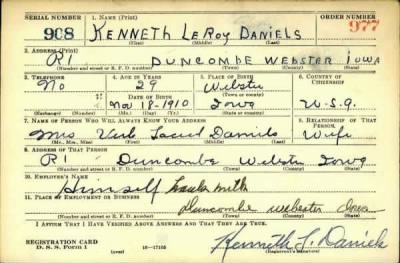 SERIAL NUMBER 1. NAME (Print) ORDER NUMBER
908 KENNETH LEROY DANIELS 977
(First) (Middle) (Last)
2. ADDRESS (Print)
R1 DUNCOMBE WEBSTER IOWA
(Number and street or R. F. D. number) (Town) (County) (State)
3. TELEPHONE 4. AGE IN YEARS 5. PLACE OF BIRTH 6. COUNTRY OF CITIZENSHIP
No 29 Webster
DATE OF BIRTH (Town or county)
Nov 18-1910 Iowa U-S-A
(Exchange) (Number) (Mo.) (Day) (Yr.) (State or country)
7. NAME OF PERSON WHO WILL ALWAYS KNOW YOUR ADDRESS RELATIONSHIP OF THAT PERSON
Mrs Daniels Wife
(Mr., Mrs., Miss) (First) (Middle) (Last)
8. ADDRESS OF THAT PERSON
R1 Duncombe Webster Iowa
(Number and street or R. F. D. number) (Town) (County) (State)
10. EMPLOYER'S NAME
Himself
11. PLACE OF EMPLOYMENT OR BUSINESS
Duncombe Webster Iowa
(Number and street or R. F. D. number) (Town) (County) (State)
I AFFIRM THAT I HAVE VERIFIED ABOVE ANSWERS AND THAT THEY ARE TRUE.
REGISTRATION CARD
D. S. S. Form 1 (over) 16-17105 Kenneth L. Daniels
(Registrant's signature)